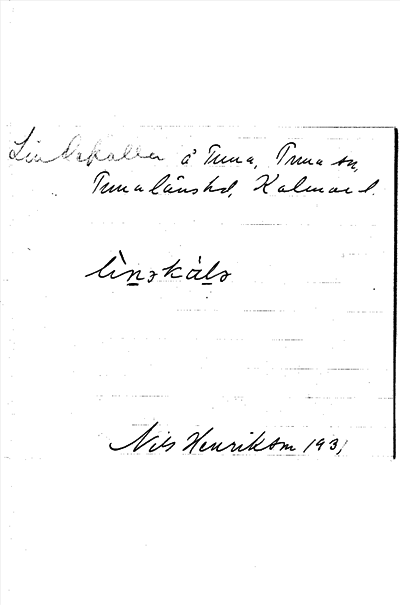 Lindekallen å Tuna, Tuna sn,
Tunalänshd, Kalmar l.
lìn̲əkàl̲ə
Nils Henrikson 1931